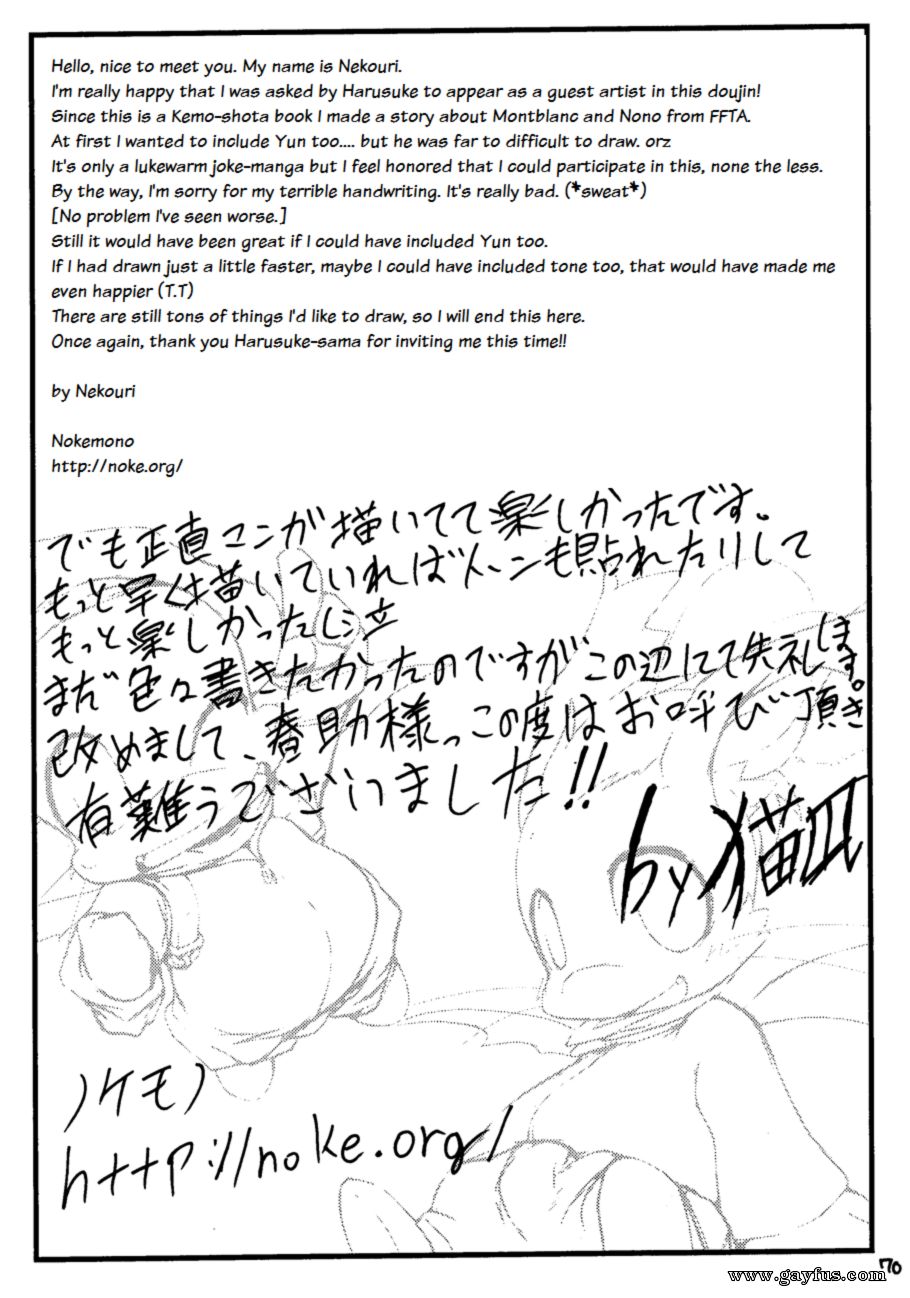 Hello, nice to meet you. My name is Nekouri.
I'm really happy that I was asked by Harusuke to appear as a guest artist in this doujin!
Since this is a Kemo-shota book I made a story about Montblanc and Nono from FFTA.
At first I wanted to include Yun too.... but he was far to difficult to draw. orz
It's only a lukewarm joke-manga but I feel honored that I could participate in this, none the less.
By the way, I'm sorry for my terrible handwriting. It's really bad. (*sweat*)
[No problem I've seen worse.]
Still it would have been great if I could have included Yun too.
If I had drawn just a little faster, maybe I could have included tone too, that would have made me
even happier (T.T)
There are still tons of things I'd like to draw, so I will end this here.
Once again, thank you Harusuke-sama for inviting me this time!!
by Nekouri
Nokemono
http://noke.org/
でも正直マンガ描いてて楽しかったです。
もっと早く描いていればトーンも貼れたりして
もっと楽しかったし泣
まだ色々書きたかったのですがこの辺にて失礼します。
改めまして、春助様っこの度はお呼び頂き
有難うございました!!
by猫瓜
ノケモノ
http://noke.org/
70
www.gayfus.com